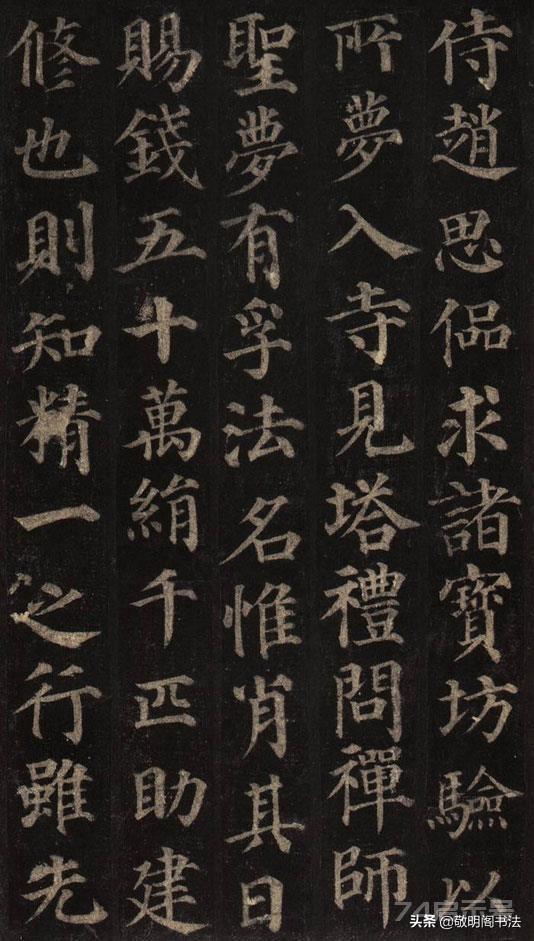 侍趙思侶求諸寶坊驗以
所夢入寺見塔禮問禪師
聖夢有孚法名惟肖其日
賜錢五十萬絹千匹助建
修也則知精一之行雖先
头条 @敬明阁书法